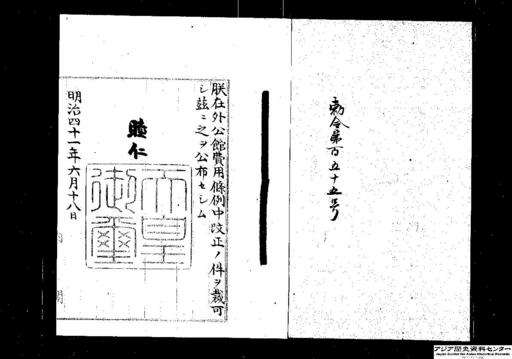 勅令第百五十五号
朕在外公館費用條例中改正ノ件ヲ裁可
シ茲ニ之ヲ公布セシム
睦仁
天皇御璽
明治四十一年六月十八日
アジア歴史資料センター
Japan Center for Asian Historical Records